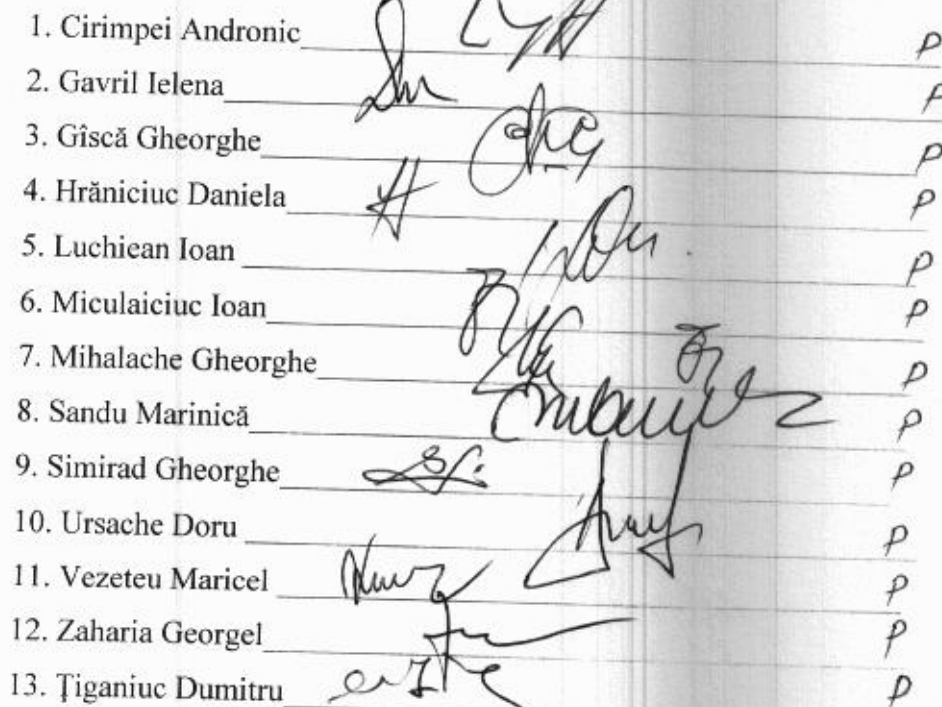 1. Cirimpei Andronic P
2. Gavril Ielena P
3. Gîscă Gheorghe P
4. Hrăniciuc Daniela P
5. Luchiean Ioan P
6. Miculaiciuc Ioan P
7. Mihalache Gheorghe P
8. Sandu Marinică P
9. Simirad Gheorghe P
10. Ursache Doru P
11. Vezeteu Maricel P
12. Zaharia Georgel P
13. Țiganiuc Dumitru P